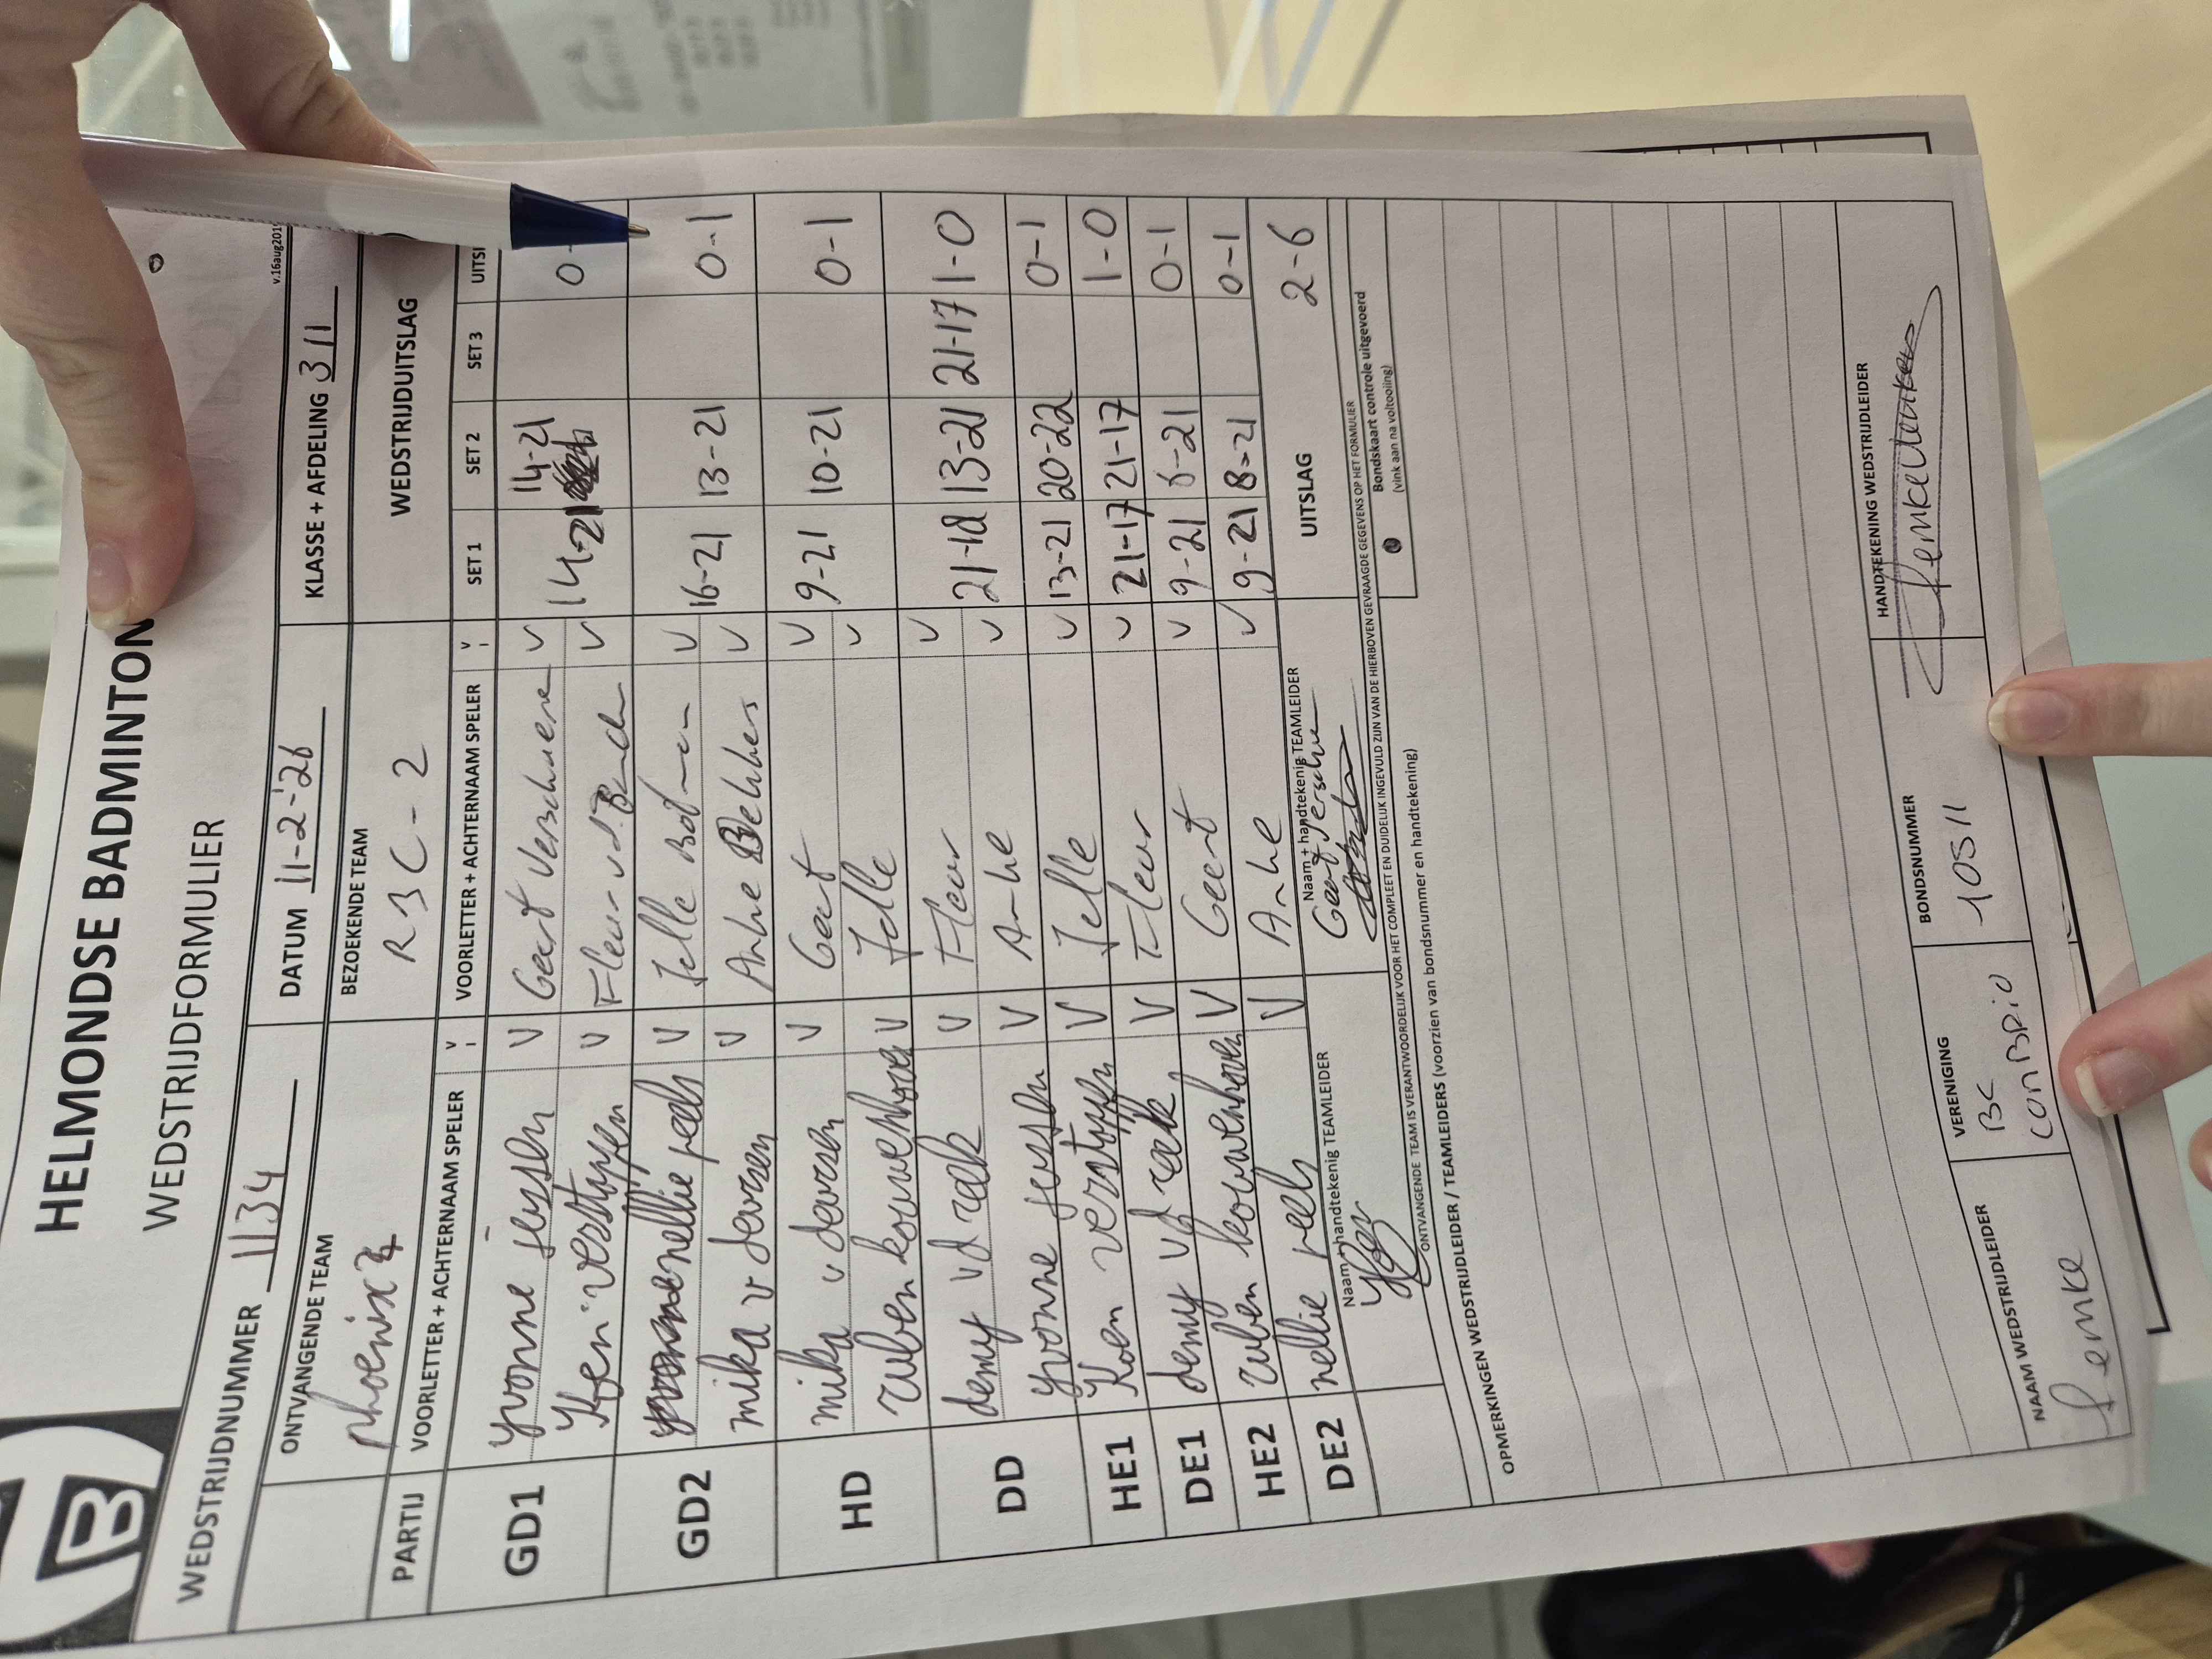 HELMONDSE BADMINTON
WEDSTRIJDFORMULIER
v.16aug201
WEDSTRIJDNUMMER 1134 DATUM 11-2-'26 KLASSE + AFDELING 311
ONTVANGENDE TEAM BEZOEKENDE TEAM WEDSTRIJDUITSLAG
phoenix 4 RBC-2
PARTIJ VOORLETTER + ACHTERNAAM SPELER V VOORLETTER + ACHTERNAAM SPELER V SET 1 SET 2 SET 3 UITSL
GD1 yvonne V Geert Verschuere V 14-21 14-21 0-
Koen verstappen V Fleur v.d. V
GD2 nellie peels V Jelle V 16-21 13-21 0-1
mika v deursen V Anke V
HD mika v deursen V Geert V 9-21 10-21 0-1
ruben kouwenhoven V Jelle V
DD demy vd raak V Fleur V 21-18 13-21 21-17 1-0
yvonne V Anke V
HE1 Koen verstappen V Jelle V 13-21 20-22 0-1
DE1 demy vd raak V Fleur V 21-17 21-17 1-0
HE2 ruben kouwenhoven V Geert V 9-21 6-21 0-1
DE2 nellie peels V Anke V 9-21 8-21 0-1
Naam + handtekenig TEAMLEIDER Naam + handtekenig TEAMLEIDER UITSLAG 2-6
Geert Verschuere
ONTVANGENDE TEAM IS VERANTWOORDELIJK VOOR HET COMPLEET EN DUIDELIJK INGEVULD ZIJN VAN DE HIERBOVEN GEVRAAGDE GEGEVENS OP HET FORMULIER
Bondskaart controle uitgevoerd
(vink aan na voltooiing)
OPMERKINGEN WEDSTRIJDLEIDER / TEAMLEIDERS (voorzien van bondsnummer en handtekening)
NAAM WEDSTRIJDLEIDER VERENIGING BONDSNUMMER HANDTEKENING WEDSTRIJDLEIDER
Femke BC Con Brio 10511